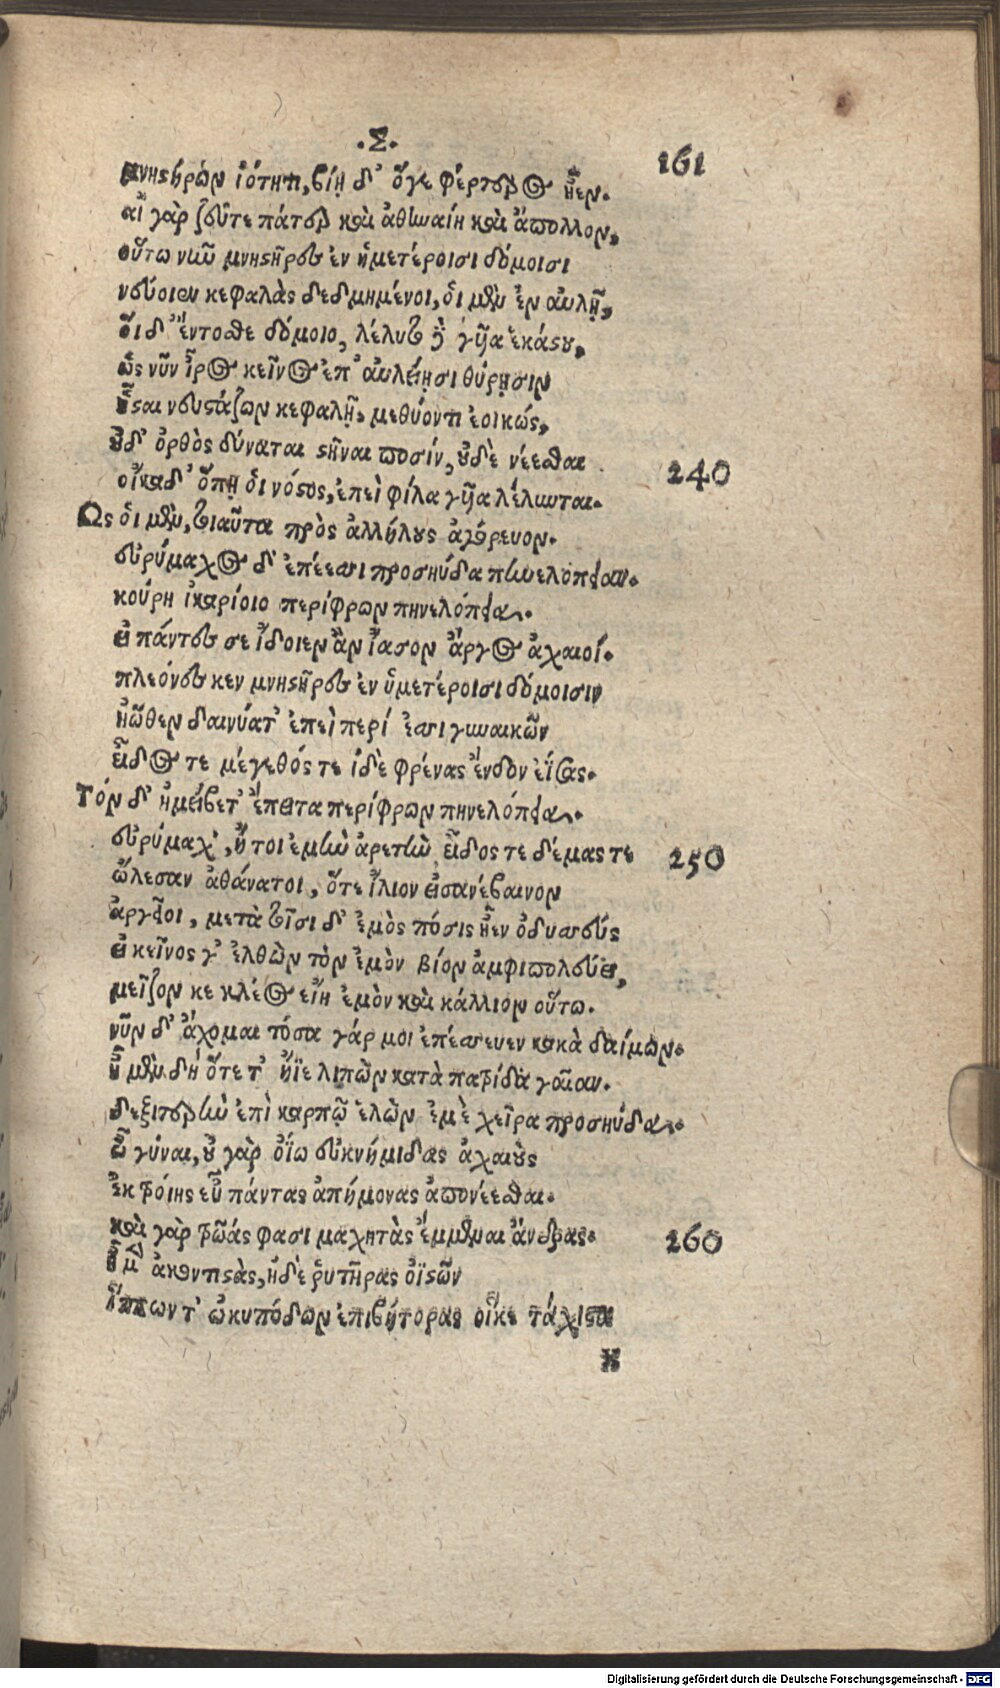 .Σ.
161
μνηστήρων ἰότητι, βίῃ δ' ὅγε φέρτερος ἦεν.
αἲ γὰρ ζεῦτε πάτερ καὶ ἀθηναίη καὶ ἄπολλον,
οὕτω νῦν μνηστῆρες ἐν ἡμετέροισι δόμοισι
νεύοιεν κεφαλὰς δεδμημένοι, ὁι μὲν ἐν αυλῇ,
ὅι δ' ἔντοσθε δόμοιο, λέλυτο δὲ γῦα ἑκάστου,
ὡς νῦν ἶρος κεῖνος ἐπ' αυλείῃσι θύρῃσιν
ἧσαι νευστάζων κεφαλῇ, μεθύοντι ἐοικώς,
οὐδ' ὀρθὸς δύναται στῆναι ποσίν, οὐδὲ νέεσθαι
240
οἴκαδ' ὅπῃ ὁι νόστος, ἐπεὶ φίλα γῦα λέλυνται.
Ως ὁι μὲν, τοιαῦτα πρὸς ἀλλήλους ἀγόρευον.
εὐρύμαχος δ' ἐπέεσσι προσηύδα πηνελόπειαν.
κούρη ἰκαρίοιο περίφρων πηνελόπεια.
εἰ πάντες σε ἴδοιεν ἂν ἴασον ἄργος ἀχαιοί.
πλεόνες κεν μνηστῆρες ἐν ὑμετέροισι δόμοισιν
ἠῶθεν δαινύατ' ἐπεὶ περί ἐσσι γυναικῶν
εἶδος τε μέγεθός τε ἰδὲ φρένας ἔνδον ἐΐσας.
Τόν δ' ἠμείβετ' ἔπειτα περίφρων πηνελόπεια.
εὐρύμαχ', ἤτοι ἐμὴν ἀρετὴν εἶδος τε δέμας τε
250
ὤλεσαν ἀθάνατοι, ὅτε ἴλιον εἰσανέβαινον
ἀργεῖοι, μετὰ τοῖσι δ' ἐμὸς πόσις ἦεν ὀδυσσεύς
εἰ κεῖνος γ' ἐλθὼν τὸν ἐμὸν βίον ἀμφιπολεύει,
μεῖζον κε κλέος εἴη ἐμὸν καὶ κάλλιον οὕτω.
νῦν δ' ἄχομαι τόσα γάρ μοι ἐπέσσευεν κακὰ δαίμων.
ἦ μὲν δὴ ὅτε τ' ἤϊε λιπὼν κατὰ πατρίδα γαῖαν.
δεξιτερὴν ἐπὶ καρπῷ ἑλὼν ἐμὲ χεῖρα προσηύδα.
ὦ γύναι, οὐ γὰρ ὀΐω εὐκνήμιδας ἀχαιοὺς
ἐκ τροίης εὖ πάντας ἀπήμονας ἀπονέεσθαι.
καὶ γὰρ τρῶάς φασι μαχητὰς ἔμμεναι ἄνδρας.
260
ἠμὲν ἀκοντιστὰς, ἠδὲ ῥυτῆρας οἰϊστῶν
ἵππων τ' ὠκυπόδων ἐπιβήτορας οἵ κε τάχιστα